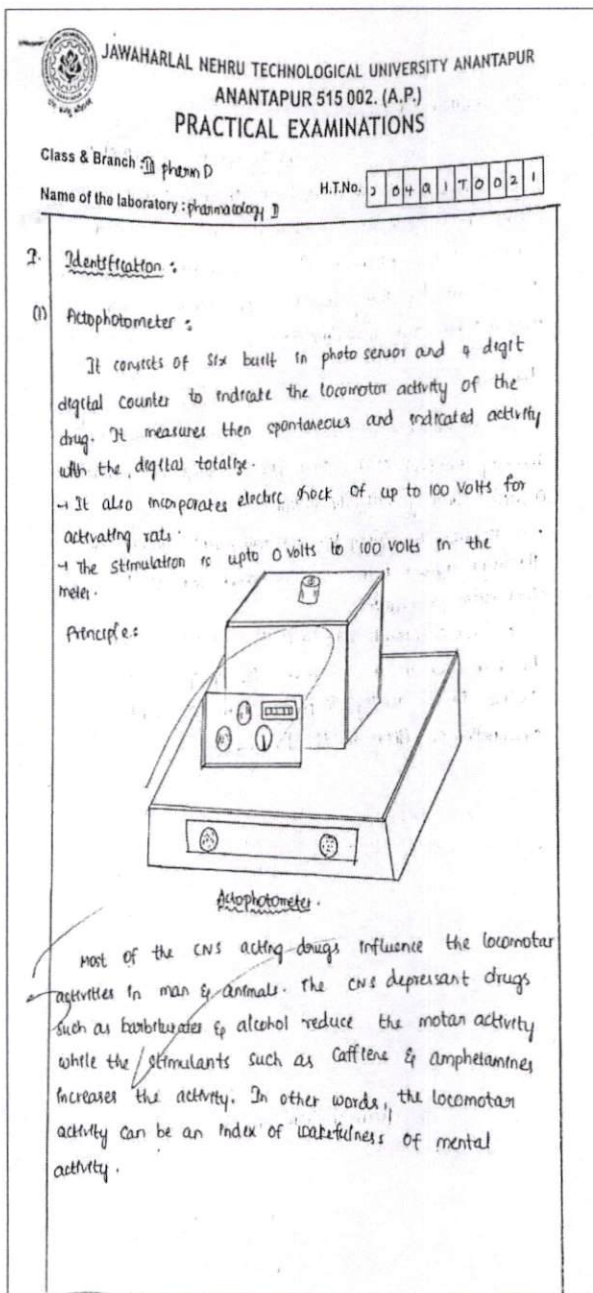 JAWAHARLAL NEHRU TECHNOLOGICAL UNIVERSITY ANANTAPUR
ANANTAPUR 515 002. (A.P.)
PRACTICAL EXAMINATIONS
Class & Branch : III pharm D
H.T.No. 2 0 4 Q 1 T 0 0 2 1
Name of the laboratory : pharmacology II
I. Identification :
(1) Actophotometer :
It consists of six built in photo sensor and 4 digit
digital counter to indicate the locomotor activity of the
drug. It measures then spontaneous and indicated activity
with the digital totalize.
→ It also incorporates electric shock of up to 100 Volts for
activating rats.
→ The stimulation is upto 0 volts to 100 volts in the
meter.
Principle :
Actophotometer.
Most of the CNS acting drugs influence the locomotar
activities in man & animals. The CNS depressant drugs
such as barbiturates & alcohol reduce the motar activity
while the stimulants such as Caffiene & amphetamines
increases the activity. In other words, the locomotar
activity can be an index of wakefulness of mental
activity.